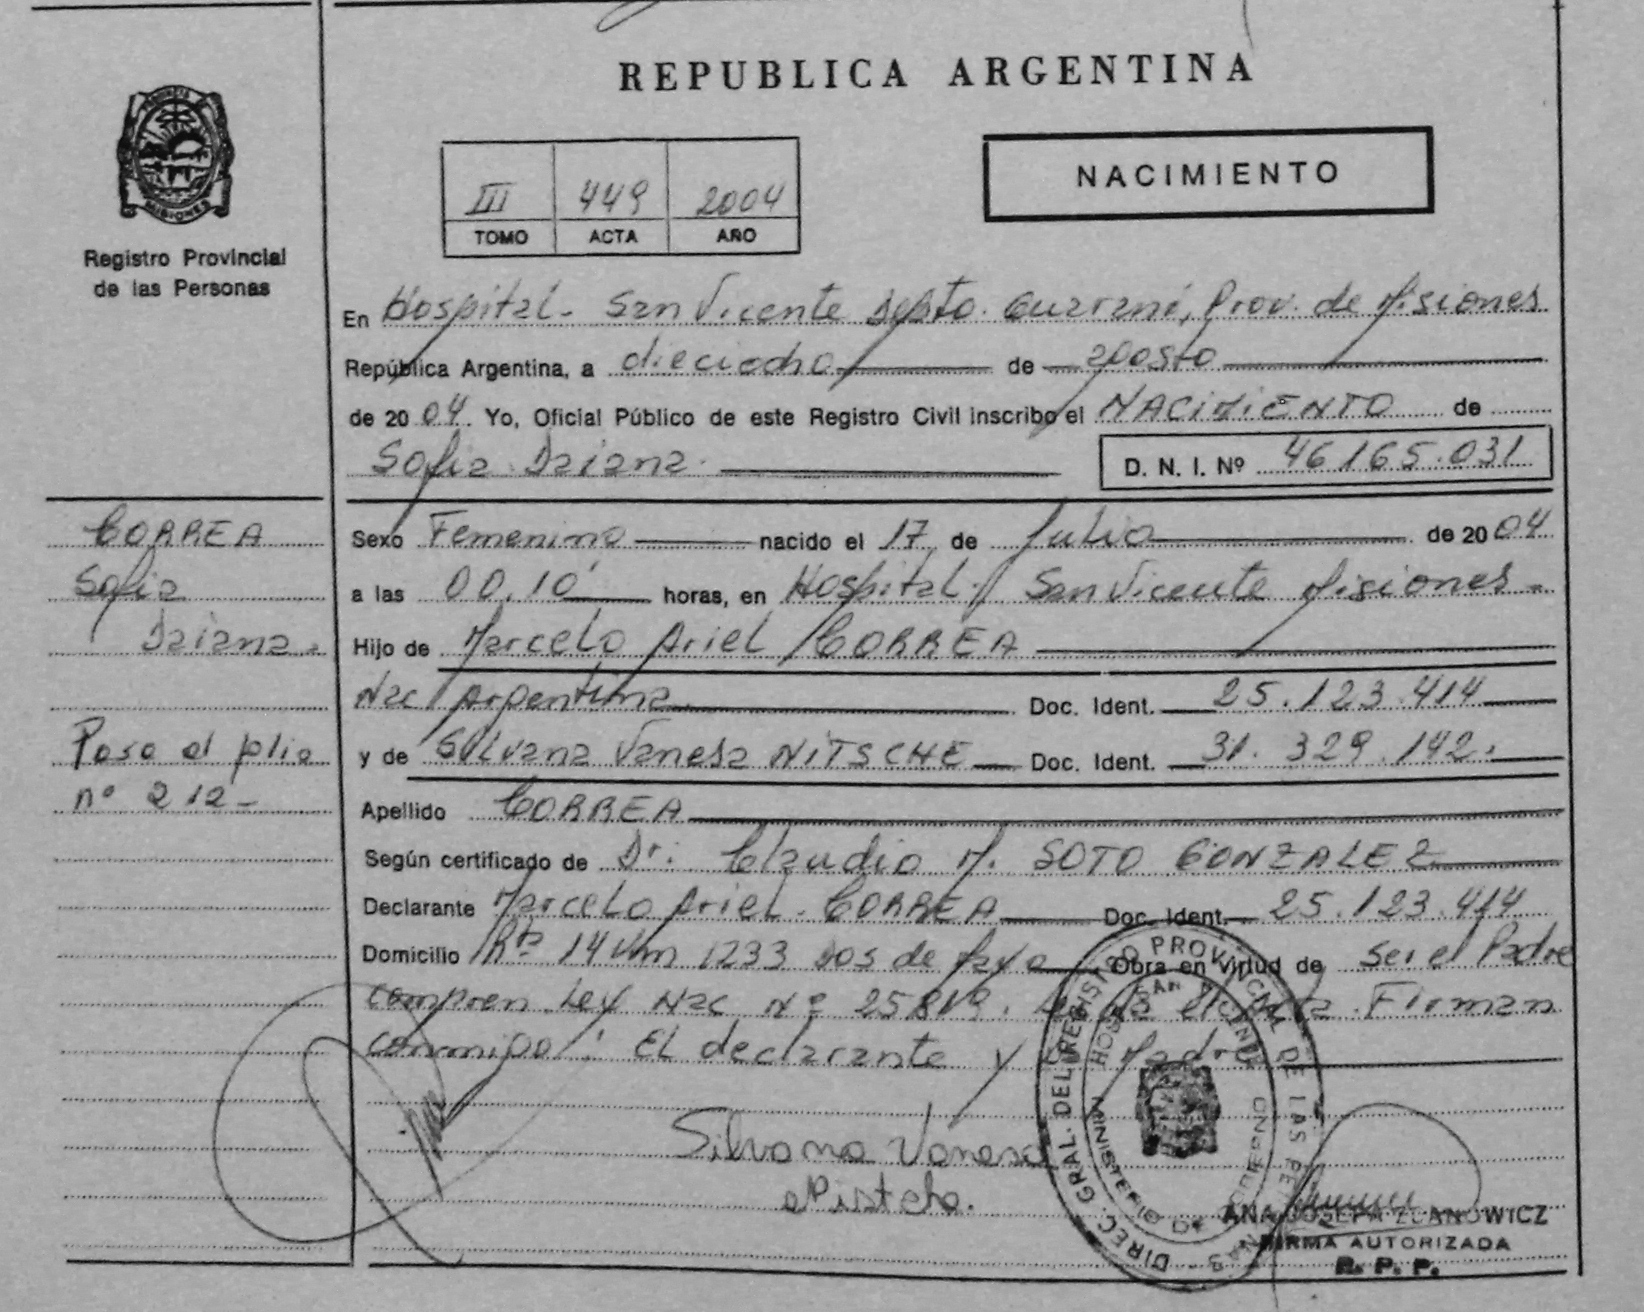 REPUBLICA ARGENTINA
PROVINCIA DE
MISIONES
Registro Provincial
de las Personas
NACIMIENTO
III 449 2004
TOMO ACTA AÑO
En Hospital - San Vicente Depto. Guaraní, Prov. de Misiones
República Argentina, a dieciocho de agosto
de 2004. Yo, Oficial Público de este Registro Civil inscribo el NACIMIENTO de
Sofia Daiana. D. N. I. Nº 46165.031
CORREA
Sofia
Daiana.
Paso al folio
nº 212-
Sexo Femenino nacido el 17 de Julio de 2004
a las 00,10' horas, en Hospital San Vicente Misiones -
Hijo de Marcelo Ariel CORREA
Nac Argentina Doc. Ident. 25.123.414
y de Silvana Vanesa NITSCHE Doc. Ident. 31.329.142.
Apellido CORREA
Según certificado de Dr. Claudio M. SOTO GONZALEZ
Declarante Marcelo Ariel CORREA Doc. Ident. 25.123.414
Domicilio Rta 14 Km 1233 Dos de Mayo Obra en virtud de ser el Padre
Compren. Ley Nac Nº 25819. Acta. Firman
conmigo: El declarante y Madre
Silvana Vanesa
DIREC. GRAL. DEL REGISTRO PROVINCIAL DE LAS PERSONAS
HOSP. SAN VICENTE
MINISTERIO DE GOBIERNO
ANA JOSEFA ZLANOWICZ
FIRMA AUTORIZADA
R. P. P.